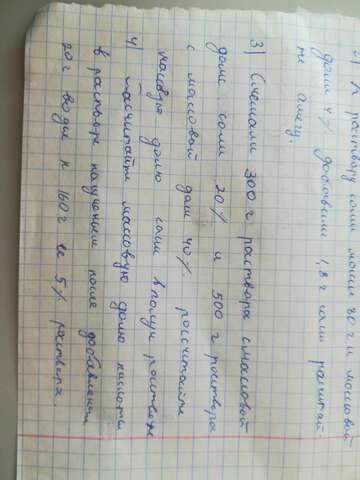 К раствору соли массой 80 г и массовой
доли 4% добавили 1,8 г соли
не
3) Смешали 300 г раствора с массовой
доле соли 20% и 500 г раствора
с массовой доли 40% россчитайте
массовую долю соли в получ растворе
4) расчитайте массовую долю кислоты
в растворе полученом после добавления
20 г воды к 160 г ее 5% раствора.